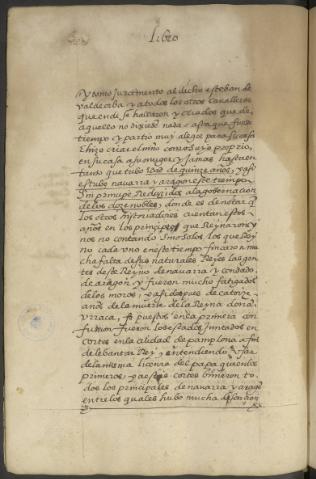 Libro
y tomo Juramento al dicho esteban de
Valdecaba y a todos los otros cavalleros
que ende se hallaron y criados que de
aquello no dixesen nada asta que fuese
tiempo y partio muy alegre para su casa
E hizo criar el niño como suyo proprio,
en su casa a su muger, y Jamas hasta en
tanto que tubo edad de quinze años, y assi
estubo navarra y aragon este tiempo
Sin principe Reduzidos a la governacion
de los doze nobles, donde es de notar
los otros historiadores cuentan estos
años en los principes que Reynaron y
nos no contando sino solos los que Rey
no cada uno en este tiempo hizieron mu
cha falta de sus naturales Reyes las gen
tes deste Reyno de navarra y condado
de aragon y fueron mucho fatigados
de los moros, y assi despues de catorze
años de la muerte de la Reyna doña
Urraca, puestos en la primera con
fusion fueron los estados Juntados en
cortes en la ciudad de pamplona a fin
de lebantar Rey y entendiendo
de la misma licencia del papa que en los
primeros, y a estas cortes binieron to
dos los principales de navarra y aragon
entre los quales hubo mucha